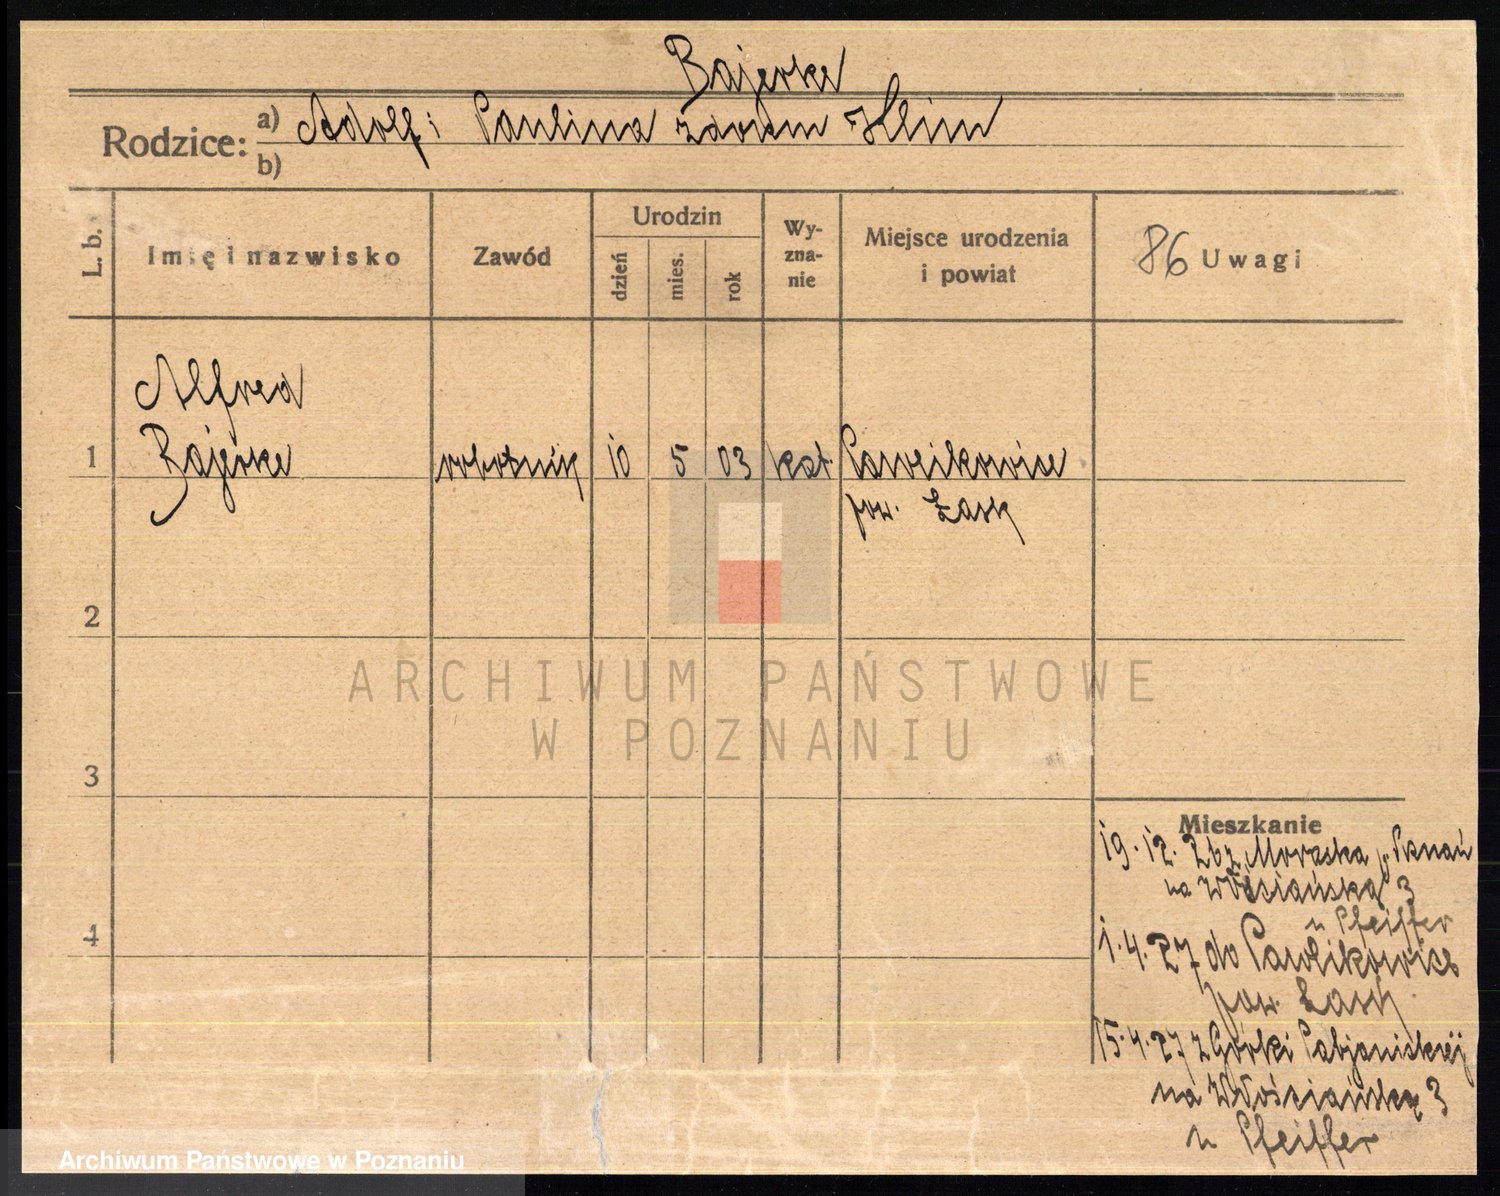 Bajerke
Rodzice: a) Adolf i Paulina zdomu Klim
b)
L. b.
Imię i nazwisko
Zawód
Urodzin
dzień
mies.
rok
Wy-
zna-
nie
Miejsce urodzenia
i powiat
86 Uwagi
Alfred
1 Bajerke robotnik 10 5 03 kat Pawlikowice
pow. Łask
2
ARCHIWUM PAŃSTWOWE
W POZNANIU
3
Mieszkanie
19.12.26 z Moraska p. Poznań
na Włościańską 3
u Pfeiffer
4
1.4.27 do Pawlikowice
pow. Łask
15.4.27 z Górki Pabjaniskiej
na Włościańską 3
u Pfeiffer
Archiwum Państwowe w Poznaniu